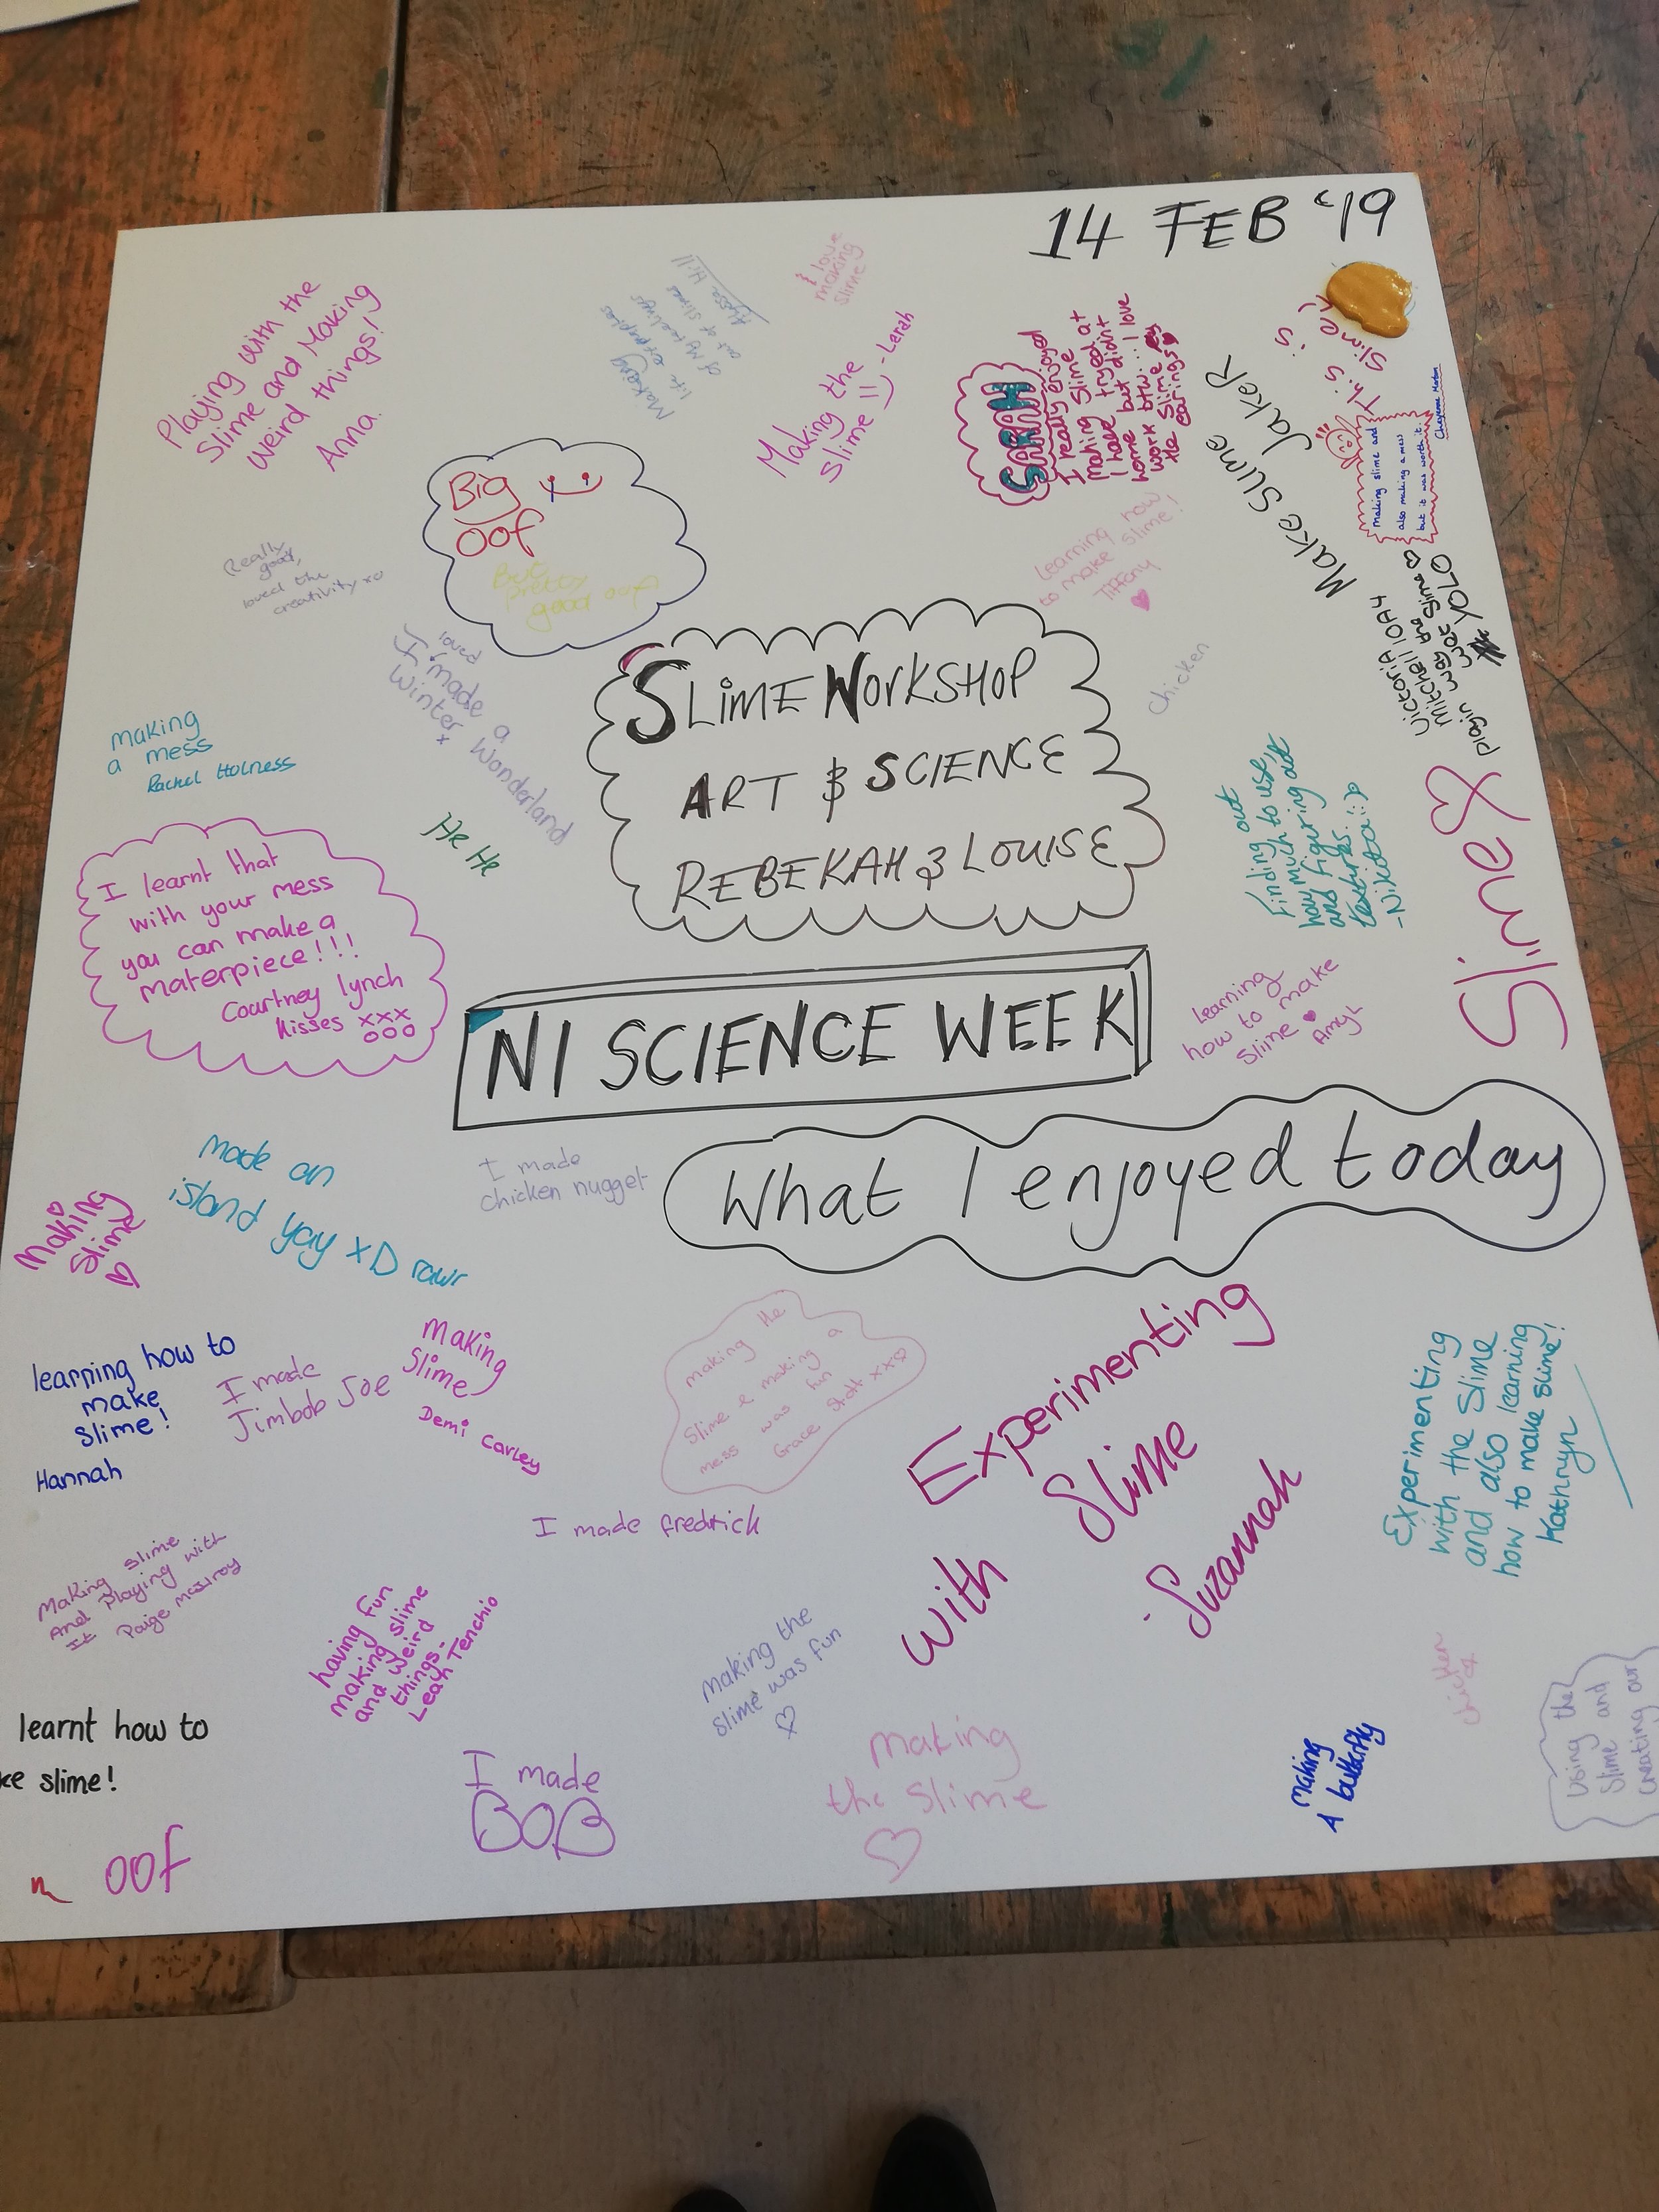 14 FEB '19
Playing with the
Slime and Making
weird things!
Anna.
I love
making
slime
Making the
slime
-Lerah
SARAH
I really enjoyed
making slime
I have tryed at
home but didint
work btw... I love
the slime
earings
This is
slime
Make Slime JakeR
Making slime and
also making a mess
but it was worth it.
Big
oof
But
pretty
good oof
Really
good,
loved the
creativity xo
Learning how
to make slime!
Tiffany
Victoria 10A4
Mitchell the Slime
YOLO
I loved
made a
Winter Wonderland
x
SLIME WORKSHOP
ART & SCIENCE
REBEKAH & LOUISE
chicken
making
a mess
Rachel Holness
He He
Finding out
how much to use,
and figuring out
textures.
-Nikita
Slime
I learnt that
with your mess
you can make a
materpiece!!!
Courtney lynch
kisses xxx
ooo
NI SCIENCE WEEK
learning
how to make
slime
Amy L
What I enjoyed today
made an
island yay xD rawr
I made
chicken nugget
Making
Slime
learning how to
make
slime!
Hannah
I made
Jimbob Joe
Making
Slime
Demi Carley
making the
Slime & making a
mess was fun
Grace Stott xxx
Experimenting
with Slime
- Suzannah
Experimenting
with the Slime
and also learning
how to make slime!
Kathryn
I made fredrick
Making slime
And Playing with
It Paige
having fun
making slime
and weird
things-
Leah Tenchio
making the
slime was fun
learnt how to
ke slime!
oof
I made
BOB
making
the slime
making
A butterfly
chicken
Using the
Slime and
creating our